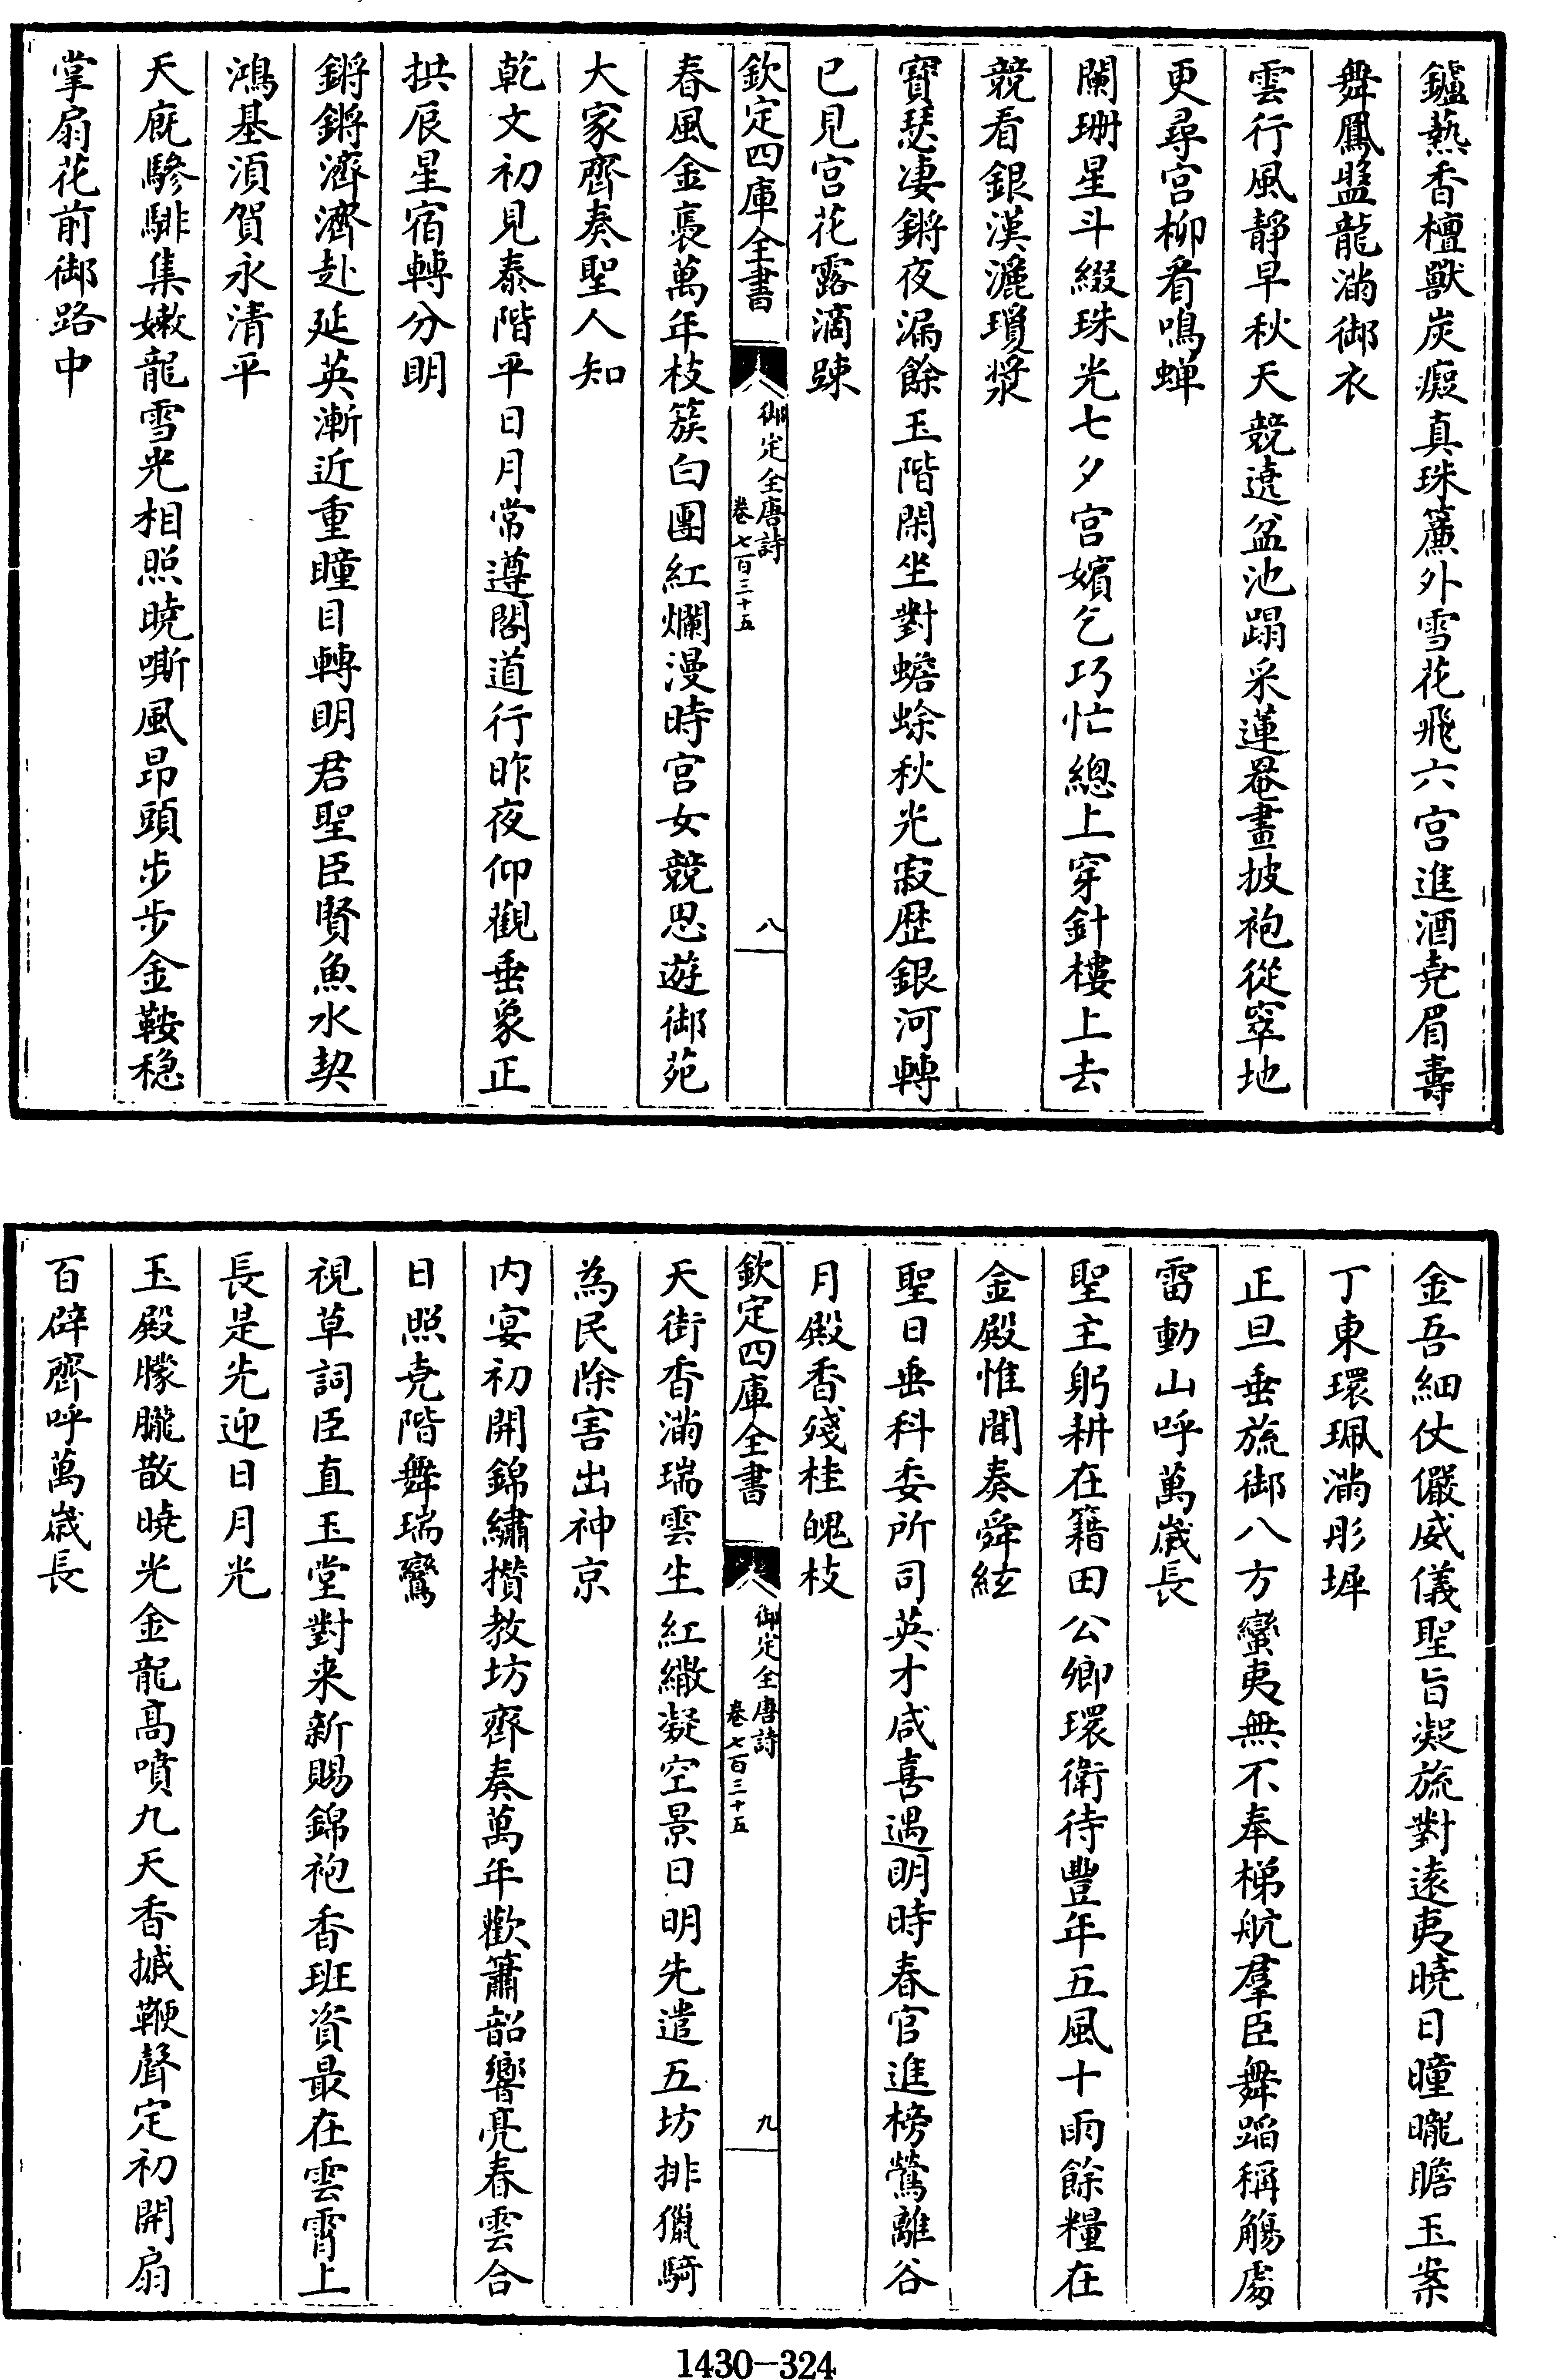 鑪爇香檀獸炭癡真珠簾外雪花飛六宮進酒堯眉壽
舞鳳盤龍滿御衣
雲行風靜早秋天競遶盆池蹋采蓮罨畫披袍從窣地
更尋宮柳看鳴蟬
闌珊星斗綴珠光七夕宮嬪乞巧忙總上穿針樓上去
競看銀漢灑瓊漿
寶瑟凄鏘夜漏餘玉階閑坐對蟾蜍秋光寂歷銀河轉
已見宮花露滴踈
欽定四庫全書
御定全唐詩
卷七百三十五
八
春風金裛萬年枝簇白團紅爛漫時宮女競思遊御苑
大家齊奏聖人知
乾文初見泰階平日月常遵閣道行昨夜仰觀垂象正
拱辰星宿轉分明
鏘鏘濟濟赴延英漸近重瞳目轉明君聖臣賢魚水契
鴻基須賀永清平
天廐驂騑集嫩龍雪光相照曉嘶風昂頭步步金鞍穩
掌扇花前御路中
金吾細仗儼威儀聖旨凝旒對遠夷曉日曈曨瞻玉案
丁東環珮滿彤墀
正旦垂旒御八方蠻夷無不奉梯航羣臣舞蹈稱觴處
雷動山呼萬歲長
聖主躬耕在籍田公卿環衛待豐年五風十雨餘糧在
金殿惟聞奏舜絃
聖日垂科委所司英才咸喜遇明時春官進榜鶯離谷
月殿香殘桂魄枝
欽定四庫全書
御定全唐詩
卷七百三十五
九
天街香滿瑞雲生紅繖凝空景日明先遣五坊排獵騎
為民除害出神京
內宴初開錦繡攢教坊齊奏萬年歡簫韶響亮春雲合
日照堯階舞瑞鸞
視草詞臣直玉堂對来新賜錦袍香班資最在雲霄上
長是先迎日月光
玉殿朦朧散曉光金龍高噴九天香搣鞭聲定初開扇
百辟齊呼萬歲長
1430-324